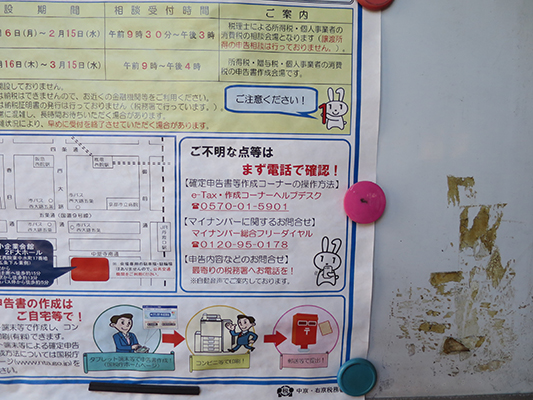 設期間 相談受付時間 ご案内
6日(月)～2月15日(水) 午前9時30分～午後3時
税理士による所得税・個人事業者の
消費税の相談会場となります(譲渡所
得の申告相談は行っておりません。)。
6日(木)～3月15日(水) 午前9時～午後4時
所得税・贈与税・個人事業者の消費
税の申告書作成会場です。
開設しておりません。
は納税はできませんので、お近くの金融機関等をご利用ください。
は納税証明書の発行は行っておりません(税務署で行っています。)。
に混雑し、長時間お待ちいただく場合があります。
状況により、早めに受付を終了させていただく場合があります。
ご注意ください!
ご不明な点等は
まず電話で確認!
【確定申告書等作成コーナーの操作方法】
e-Tax・作成コーナーヘルプデスク
☎0570-01-5901
【マイナンバーに関するお問合せ】
マイナンバー総合フリーダイヤル
☎0120-95-0178
【申告内容などのお問合せ】
最寄りの税務署へお電話を!
※自動音声でご案内しております。
五条通(国道9号線)
小企業会館
2F大ホール
申告書の作成は
ご自宅等で!
端末等で作成し、コン
できます。
端末等による確定申
成方法については国税庁
タブレット端末等で申告書作成!
コンビニ等で印刷!
郵送等で提出!
税 中京・右京税務